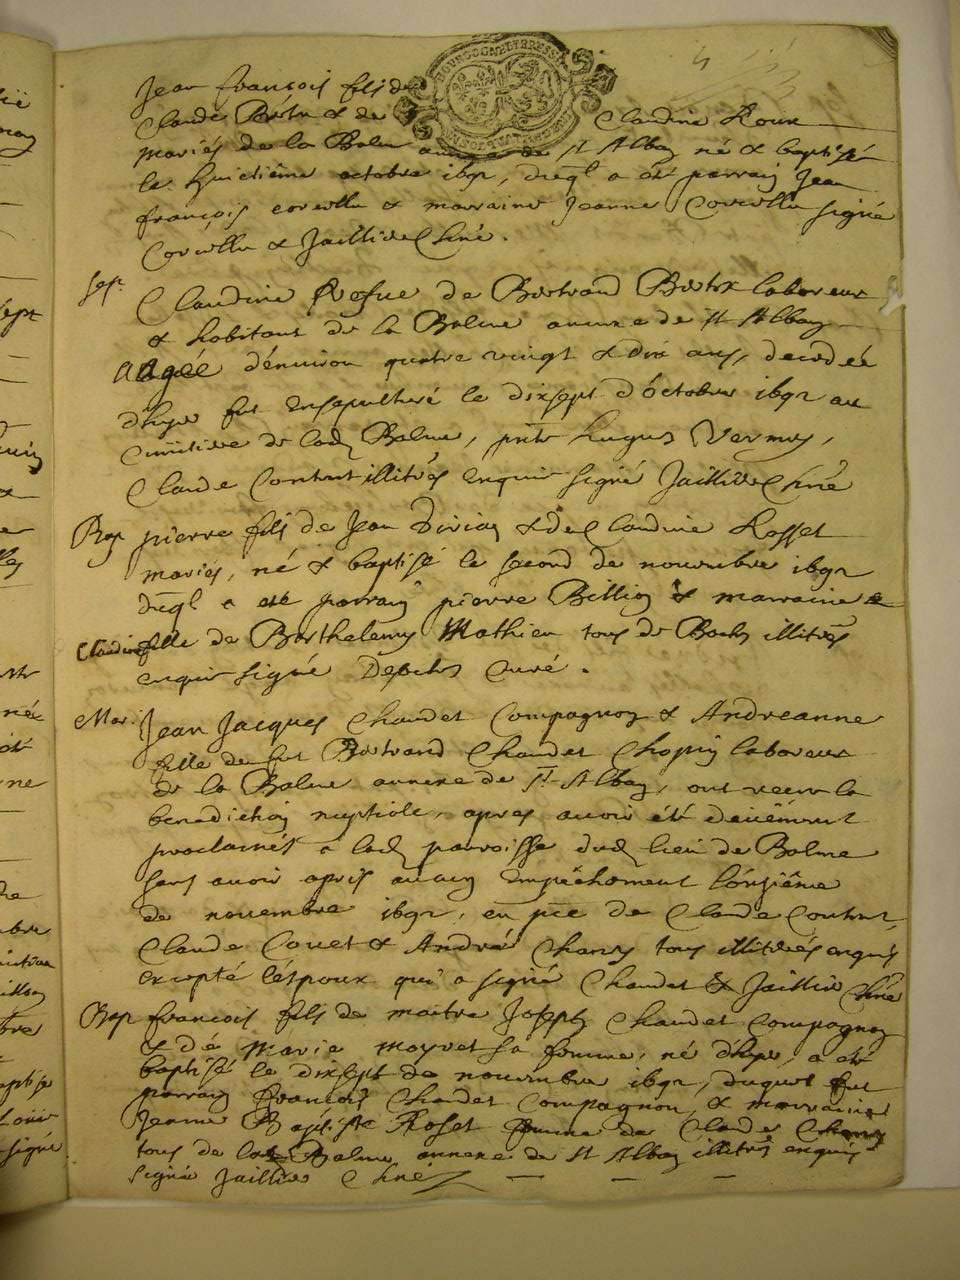 Jean françois fils de
Claude Betrx & de Claudine Roux
mariés de la Balme annexe de St Alban né & baptisé
le huictiême octobre 1692, duql a été parrain Jean
françois & marraine Jeanne signé
& Jaillie Chné.
Sep.
Claudine Refue de Bertrand Betrx laboreur
& habitant de la Balme annexe de St Alban
aagée d'environ quatre vingt & dix ans, decedée
d'hyer fut Ensepulturé le dixsept d'octobre 1692 au
cimitiere de ladt Balme, pnts hugues Vermey,
Claude Contat illitrés enquis signé Jaillie Chné
Bap pierre fils de Jean & de Claudine Rosset
mariés, né & baptisé le second de novembre 1692
duql a eté parrain pierre Billion & marraine
Claudine fille de Barthelemy Mathieu tous de illitrés
enquis signé curé.
Mar. Jean Jacques Chaudet Compagnon & Andreanne
fille de fut Bertrand Chaudet Chopin laboreur
de la Balme annexe de St Alban, ont receu la
benediction nuptiale, apres avoir été deüement
proclamés a ladt parroisse dudt lieu de Balme
sans avoir apris aucun Empêchement l'onziême
de novembre 1692, en pnce de Claude Contat,
Claude Couet & André Chany tous illitrés enquis
excepté l'epoux qui a signé Chaudet & Jaillie Chné
Bap françois fils de maitre Joseph Chaudet Compagnon
& de Marie Moyret sa femme, né d'hyer, a eté
baptisé le dixsept de novembre 1692, duquel fut
parrain François Chaudet Compagnon, & marraine
Jeanne Baptiste Roset femme de Claude Chany
tous de ladt Balme annexe de St Alban illitrés enquis
signé Jaillie Chné